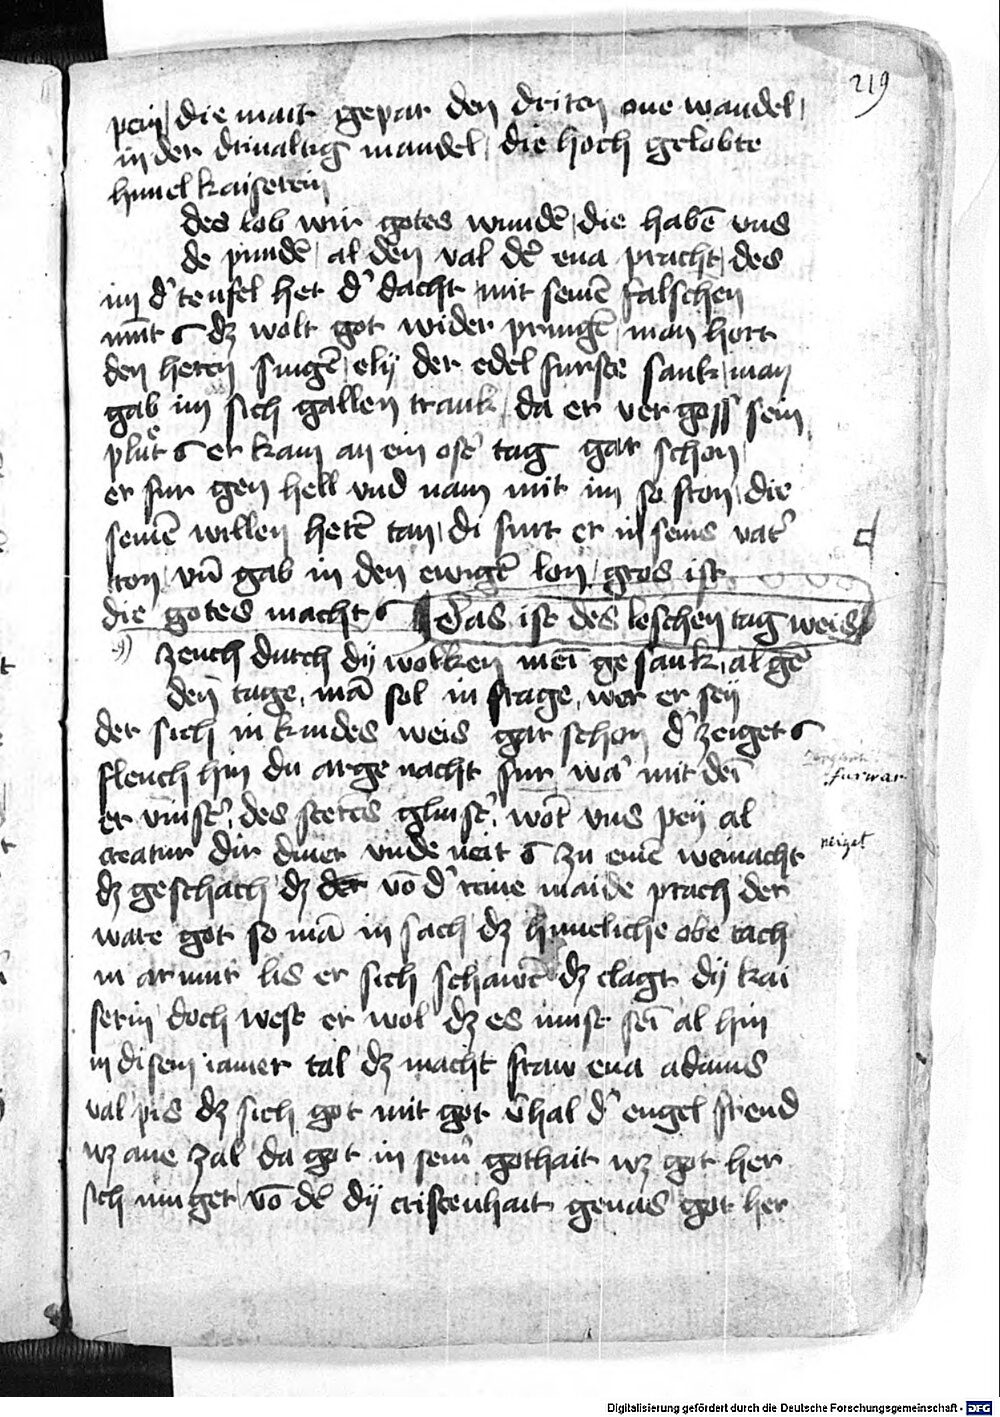 219
pein / die mait gepar den driten one wandel /
in der driualtig mandel / die hoch gelobte
himel kaiserein
des lob wir gotes wundē / die habē vns
de pundē / al den val d' eua pracht / des
im d' teufel het d' dacht mit seinē falschen
munt dz wolt got wider pringē / man hort
den heren singē / ely der edel furste sank / man
gab im sich gallen trank / da er ver goss sein
plut er kam an ein ost' tag gar schon
er fur gen hell vnd nam mit im so fron / die
seinē willen hetē tan / di furt er in seins vat'
tron / vn̄ gab in den ewigē lon / gros ist
die gotes macht Das ist des leschen tag weis
zeuch durch dy wolken mei ge sank / al gē
den tage / mā sol in frage / wer er sey
der sich in kindes weis gar schon d' zeiget
fleuch hin du arge nacht fur wa' mit dei
furwar
er vinst' / des sterns glinst' / wot vns pey al
creatur dir diner vnde neit zu einē weinacht
neiget
dz geschach dz der vō d' reine maide prach der
ware got so mā in sach dz himeliche obe tach
in armut lis er sich schawē dz clagt dy kai
serin doch west er wol dz es must sei al hin
in disem iamer tal dz macht fraw eua adams
val pis dz sich got mit got v'hal d' engel freud
wz ane zal da got in sein' gothait wz got her
sich ninget vō de dy cristenhait genas got her
Digitalisierung gefördert durch die Deutsche Forschungsgemeinschaft - DFG